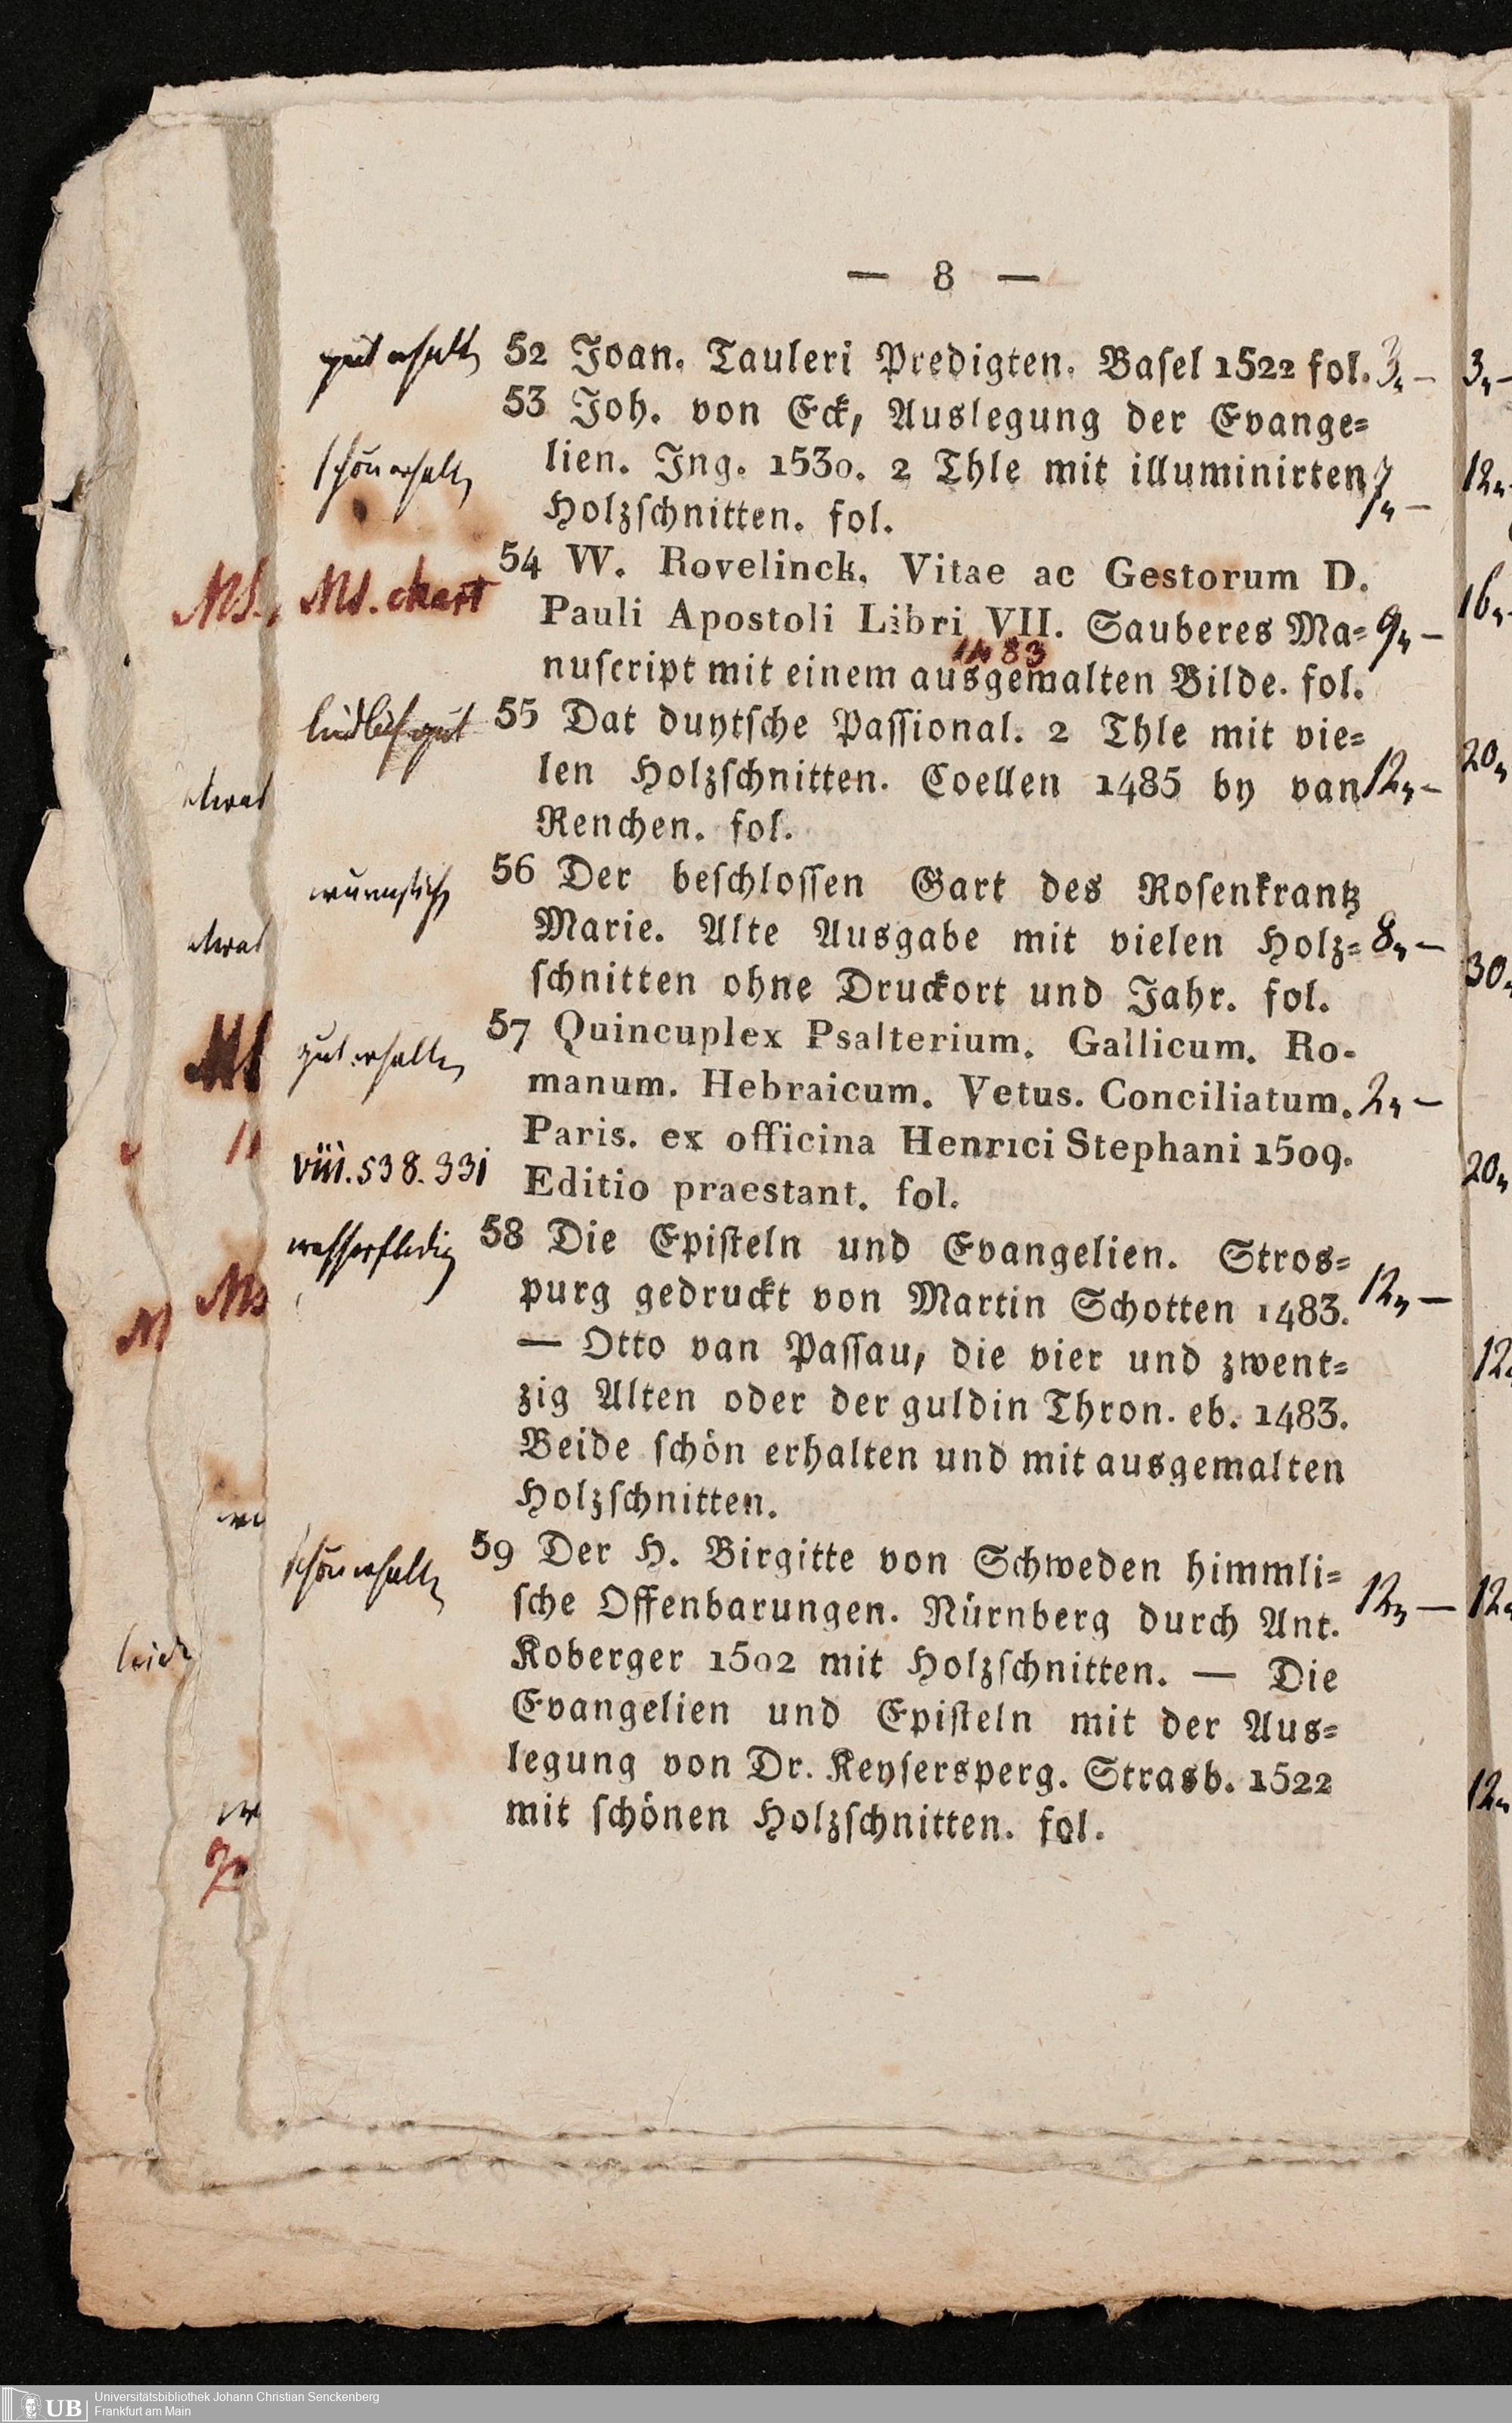 — 8 —
gut erhalten 52 Joan. Tauleri Predigten. Basel 1522 fol. 3„ — 3„ —
53 Joh. von Eck, Auslegung der Evange=
schön erhalten lien. Ing. 1530. 2 Thle mit illuminirten 7„ — 12„
Holzschnitten. fol.
54 W. Rovelinck, Vitae ac Gestorum D.
Ms. Ms. chart Pauli Apostoli Libri VII. Sauberes Ma= 9„ — 16„
1483
nuscript mit einem ausgemalten Bilde. fol.
leidlich gut 55 Dat duytsche Passional. 2 Thle mit vie=
etwas len Holzschnitten. Coellen 1485 by van 12„ — 20„
Renchen. fol.
wurmstichig 56 Der beschlossen Gart des Rosenkrantz
etwas Marie. Alte Ausgabe mit vielen Holz= 8„ — 30„
schnitten ohne Druckort und Jahr. fol.
Ms gut erhalten 57 Quincuplex Psalterium. Gallicum. Ro-
manum. Hebraicum. Vetus. Conciliatum. 2„ —
Paris. ex officina Henrici Stephani 1509.
viii. 538. 331 Editio praestant. fol. 20„
wasserfleckig 58 Die Episteln und Evangelien. Stros=
Ms purg gedruckt von Martin Schotten 1483. 12„ —
M — Otto van Passau, die vier und zwent= 12
zig Alten oder der guldin Thron. eb. 1483.
Beide schön erhalten und mit ausgemalten
Holzschnitten.
schön erhalten 59 Der H. Birgitte von Schweden himmli=
sche Offenbarungen. Nürnberg durch Ant. 12„ — 12„
Koberger 1502 mit Holzschnitten. — Die
Evangelien und Episteln mit der Aus=
legung von Dr. Keysersperg. Strasb. 1522
mit schönen Holzschnitten. fol. 12„
UB Universitätsbibliothek Johann Christian Senckenberg
Frankfurt am Main